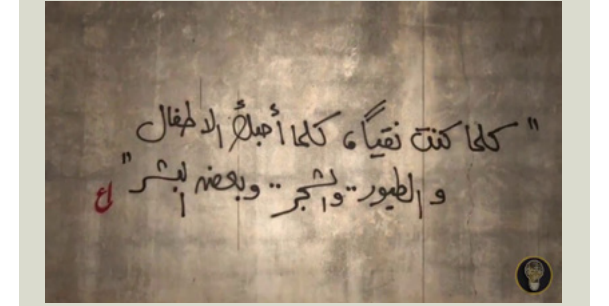 "كلما كنت نقياً، كلما أحبكَ الاطفال
و الطيور .. والشجر .. وبعض البشر"
اع